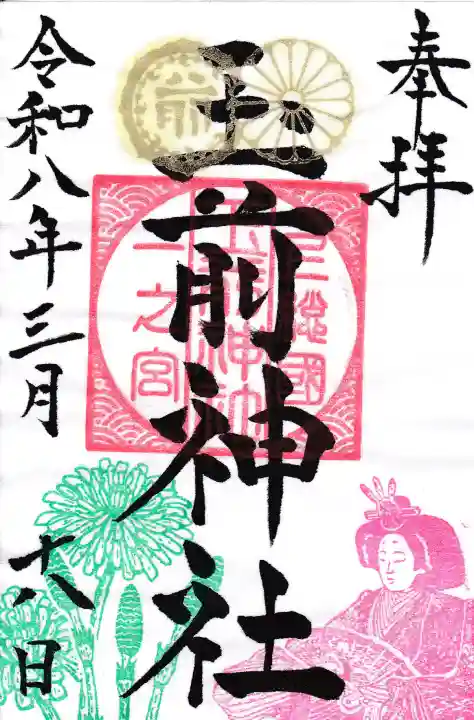 奉拝
前
玉前神社
上総國
一之宮
令和八年三月
十八日